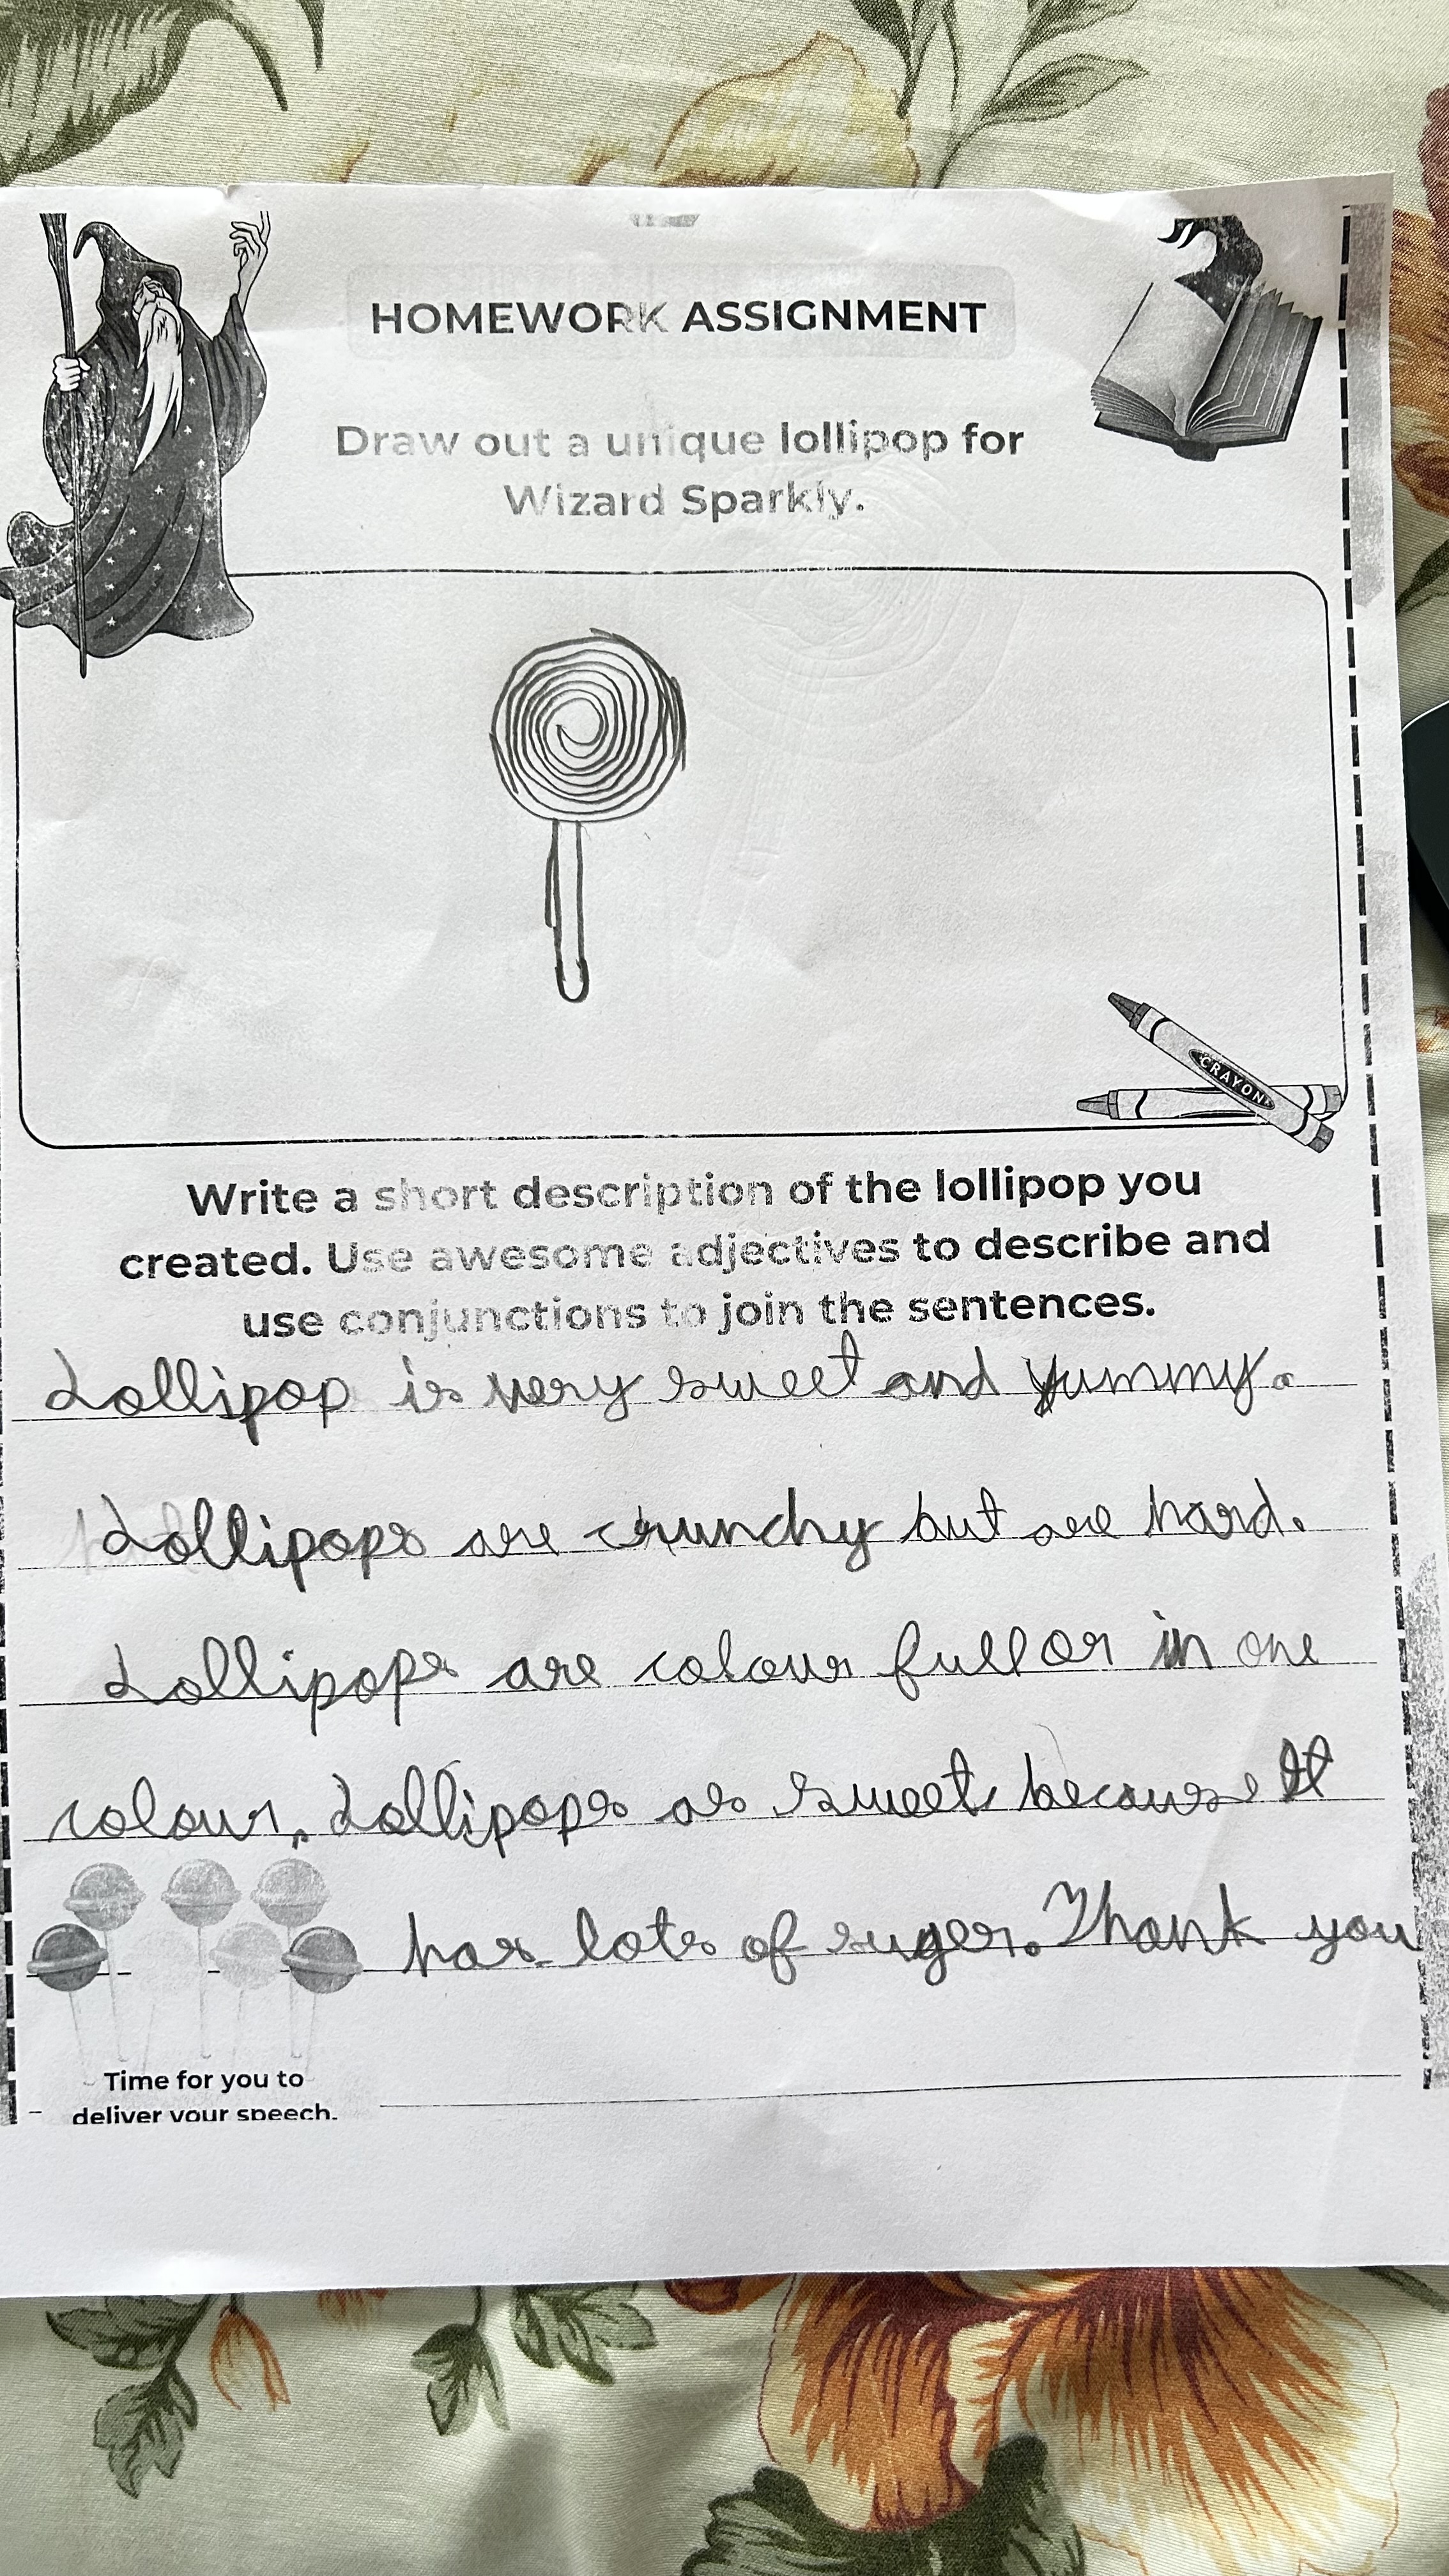 HOMEWORK ASSIGNMENT
Draw out a unique lollipop for
Wizard Sparkly.
CRAYON
Write a short description of the lollipop you
created. Use awesome adjectives to describe and
use conjunctions to join the sentences.
Lollipop is very sweet and yummy.
Lollipops are crunchy but are hard.
Lollipops are colour full or in one
colour. Lollipops as sweet because It
has lots of suger. Thank you
Time for you to
deliver your speech.